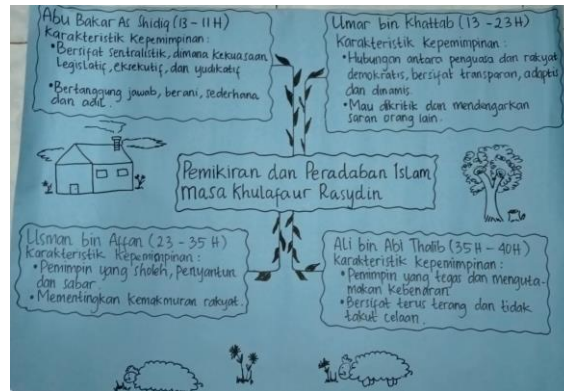 Abu Bakar As Shidiq (13 - 11 H)
Karakteristik Kepemimpinan :
• Bersifat sentralistik, dimana kekuasaan
Legislatif, eksekutif, dan yudikatif
• Bertanggung jawab, berani, sederhana
dan adil.
Umar bin Khattab (13 - 23 H)
Karakteristik Kepemimpinan :
• Hubungan antara penguasa dan rakyat
demokratis, bersifat transparan, adaptis
dan dinamis.
• Mau dikritik dan mendangarkan
saran orang lain.
Pemikiran dan Peradaban Islam
masa Khulafaur Rasydin
Usman bin Affan (23 - 35 H)
Karakteristik Kepemimpinan :
• Pemimpin yang sholeh, penyantun
dan sabar.
• Mementingkan kemakmuran rakyat.
Ali bin Abi Thalib (35 H - 40H)
Karakteristik kepemimpinan :
• Pemimpin yang tegas dan menguta-
makan kebenaran
• Bersifat terus terang dan tidak
takut celaan.